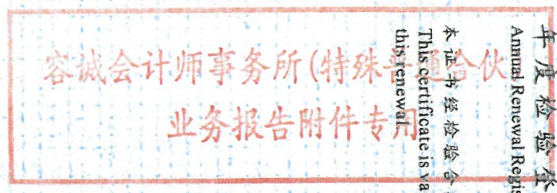 容诚会计师事务所(特殊普通合伙
业务报告附件专用
年度检验登
Annual Renewal Regis
本证书经检验合
This certificate is va
this renewal